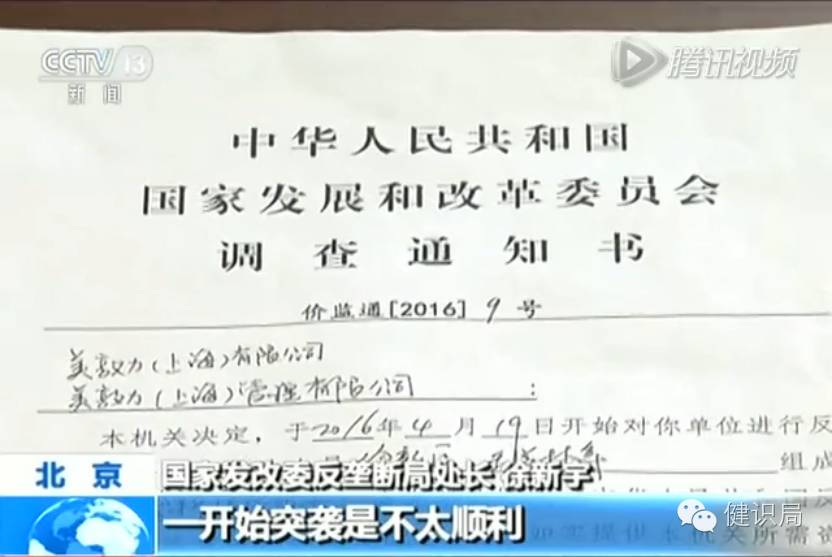 CCTV 13
新闻
腾讯视频
中华人民共和国
国家发展和改革委员会
调查通知书
价监通[2016] 9号
美敦力(上海)有限公司
美敦力(上海)管理有限公司:
本机关决定,于2016年4月19日开始对你单位进行反
组成
北京
国家发改委反垄断局处长 徐新宇
一开始突袭是不太顺利
健识局